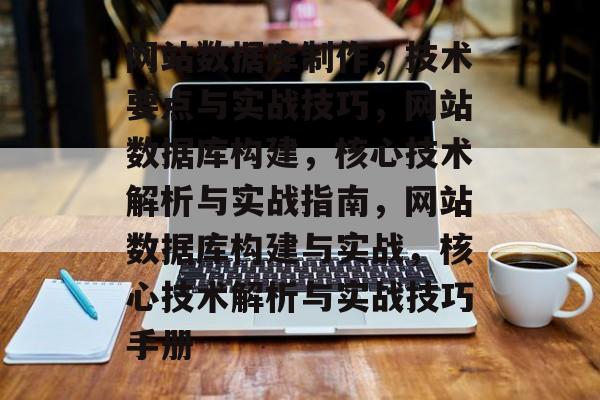 网站数据库制作，技术
要点与实战技巧，网站
数据库构建，核心技术
解析与实战指南，网站
数据库构建与实战，核
心技术解析与实战技巧
手册